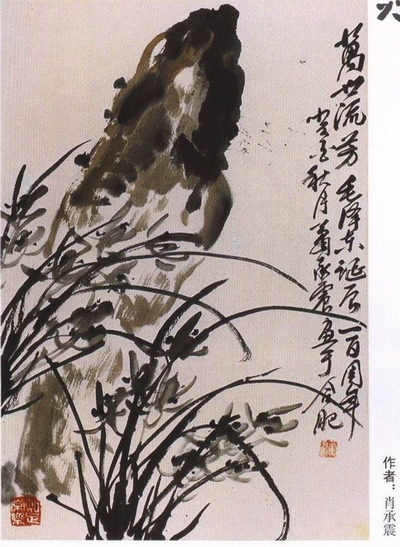 萬世流芳 毛泽东诞辰一百周年
癸酉秋月萧承震画于合肥
作者：肖承震